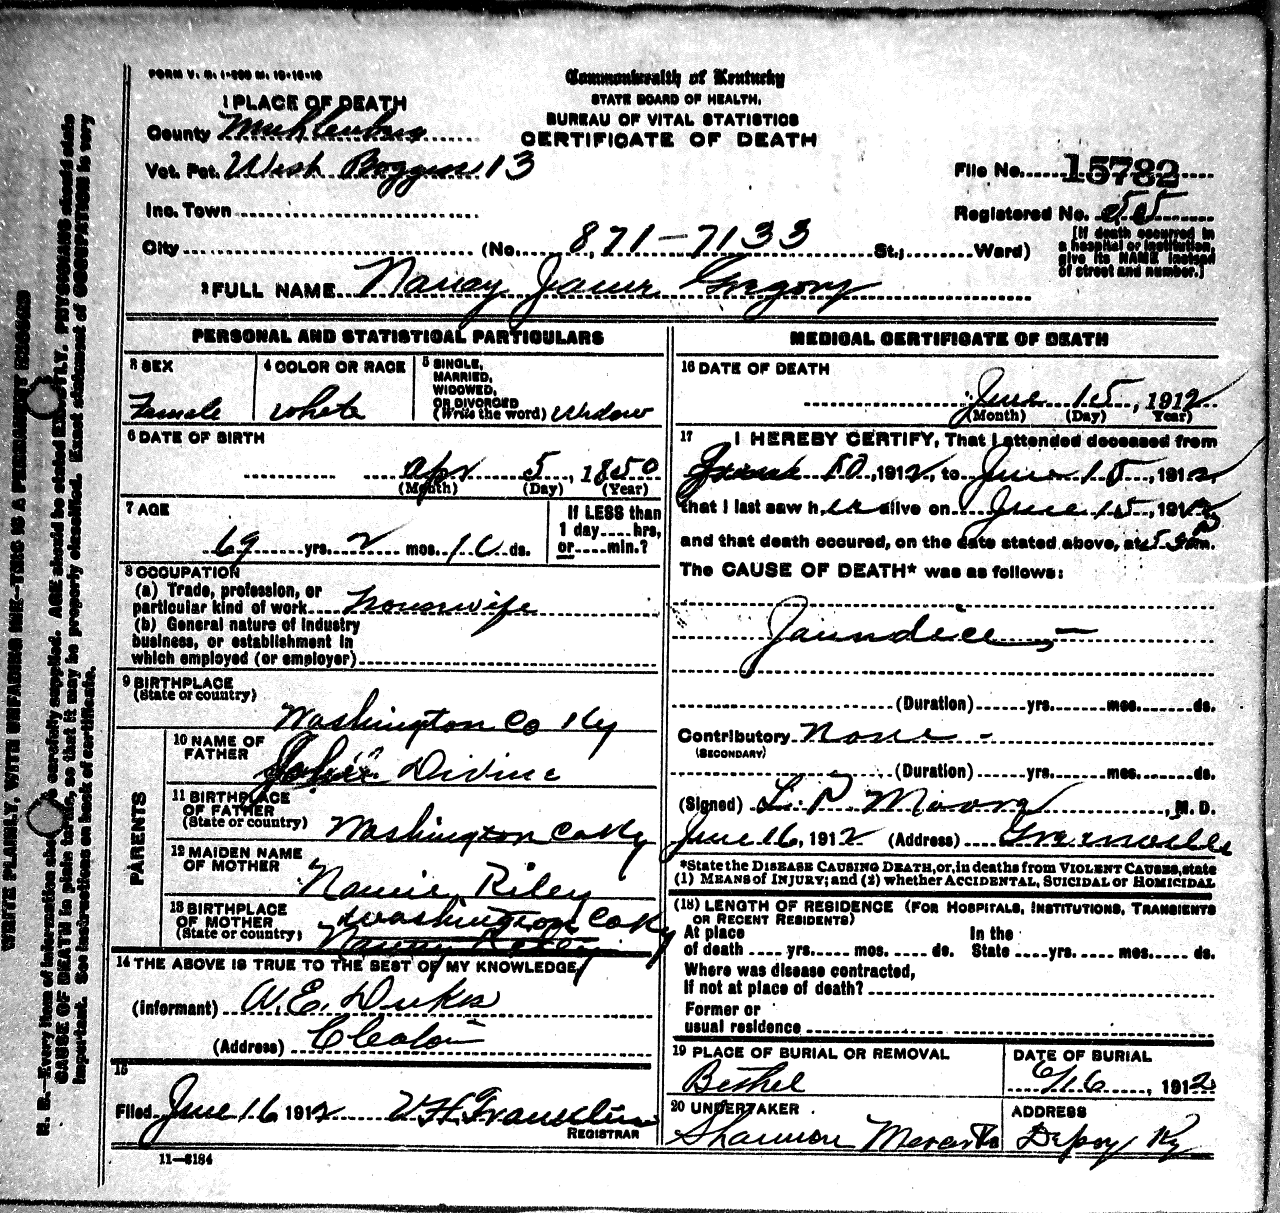 FORM V. S. 1-200 M. 10-16-10
Commonwealth of Kentucky
STATE BOARD OF HEALTH,
BUREAU OF VITAL STATISTICS
CERTIFICATE OF DEATH
1 PLACE OF DEATH
County Muhlenberg
Vot. Pct. West Boggess 13
Inc. Town
City (No. 871-7133 St.; Ward)
File No. 15782
Registered No. 55
[If death occurred in
a hospital or institution,
give its NAME instead
of street and number.]
2 FULL NAME Nancy Jane Gregory
PERSONAL AND STATISTICAL PARTICULARS
3 SEX
Female
4 COLOR OR RACE
white
5 SINGLE,
MARRIED,
WIDOWED,
OR DIVORCED
(Write the word) Widow
6 DATE OF BIRTH
Apr 5, 1850
(Month) (Day) (Year)
7 AGE
69 yrs. 2 mos. 10 ds.
If LESS than
1 day....hrs,
or.....min.?
8 OCCUPATION
(a) Trade, profession, or
particular kind of work housewife
(b) General nature of industry
business, or establishment in
which employed (or employer)
9 BIRTHPLACE
(State or country)
Washington Co Ky
PARENTS
10 NAME OF
FATHER
John Divine
11 BIRTHPLACE
OF FATHER
(State or country) Washington Co Ky
12 MAIDEN NAME
OF MOTHER
Nannie Riley
13 BIRTHPLACE
OF MOTHER
(State or country) Washington Co Ky
14 THE ABOVE IS TRUE TO THE BEST OF MY KNOWLEDGE
(Informant) W. E. Dukes
(Address) Cleaton
15
Filed June 16 1912 V H Franklin
REGISTRAR
11-3184
MEDICAL CERTIFICATE OF DEATH
16 DATE OF DEATH
June 15, 1912
(Month) (Day) Year)
17 I HEREBY CERTIFY, That I attended deceased from
10, 1912, to June 15, 1912,
that I last saw her alive on June 15, 1912
and that death occured, on the date stated above, at 5 30 P m.
The CAUSE OF DEATH* was as follows:
Jaundice
(Duration) yrs. mos. ds.
Contributory None -
(SECONDARY)
(Duration) yrs. mos. ds.
(Signed) L. P. Moore, M. D.
June 16, 1912 (Address) Greenville
*State the DISEASE CAUSING DEATH, or, in deaths from VIOLENT CAUSES, state
(1) MEANS of INJURY; and (2) whether ACCIDENTAL, SUICIDAL or HOMICIDAL
(18) LENGTH OF RESIDENCE (FOR HOSPITALS, INSTITUTIONS, TRANSIENTS
OR RECENT RESIDENTS)
At place of death yrs. mos. ds. In the State yrs. mos. ds.
Where was disease contracted,
If not at place of death?
Former or
usual residence
19 PLACE OF BURIAL OR REMOVAL
Bethel
DATE OF BURIAL
6/16, 1912
20 UNDERTAKER
Shannon Merc Co
ADDRESS
Depoy Ky
WRITE PLAINLY, WITH UNFADING INK—THIS IS A PERMANENT RECORD
N. B.—Every item of information should be carefully supplied. AGE should be stated EXACTLY. PHYSICIANS should state
CAUSE OF DEATH in plain terms, so that it may be properly classified. Exact statement of OCCUPATION is very
important. See instructions on back of certificate.